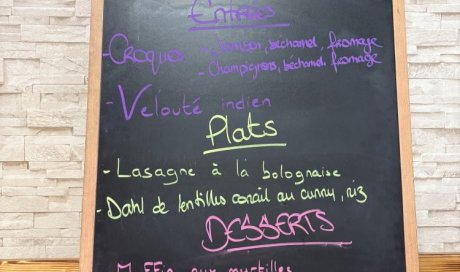 Entrées
- Croques - Jambon, béchamel, fromage
- Champignons, béchamel, fromage
- Velouté indien
Plats
- Lasagne à la bolognaise
- Dahl de lentilles corail au curry, riz
DESSERTS
Muffin aux myrtilles